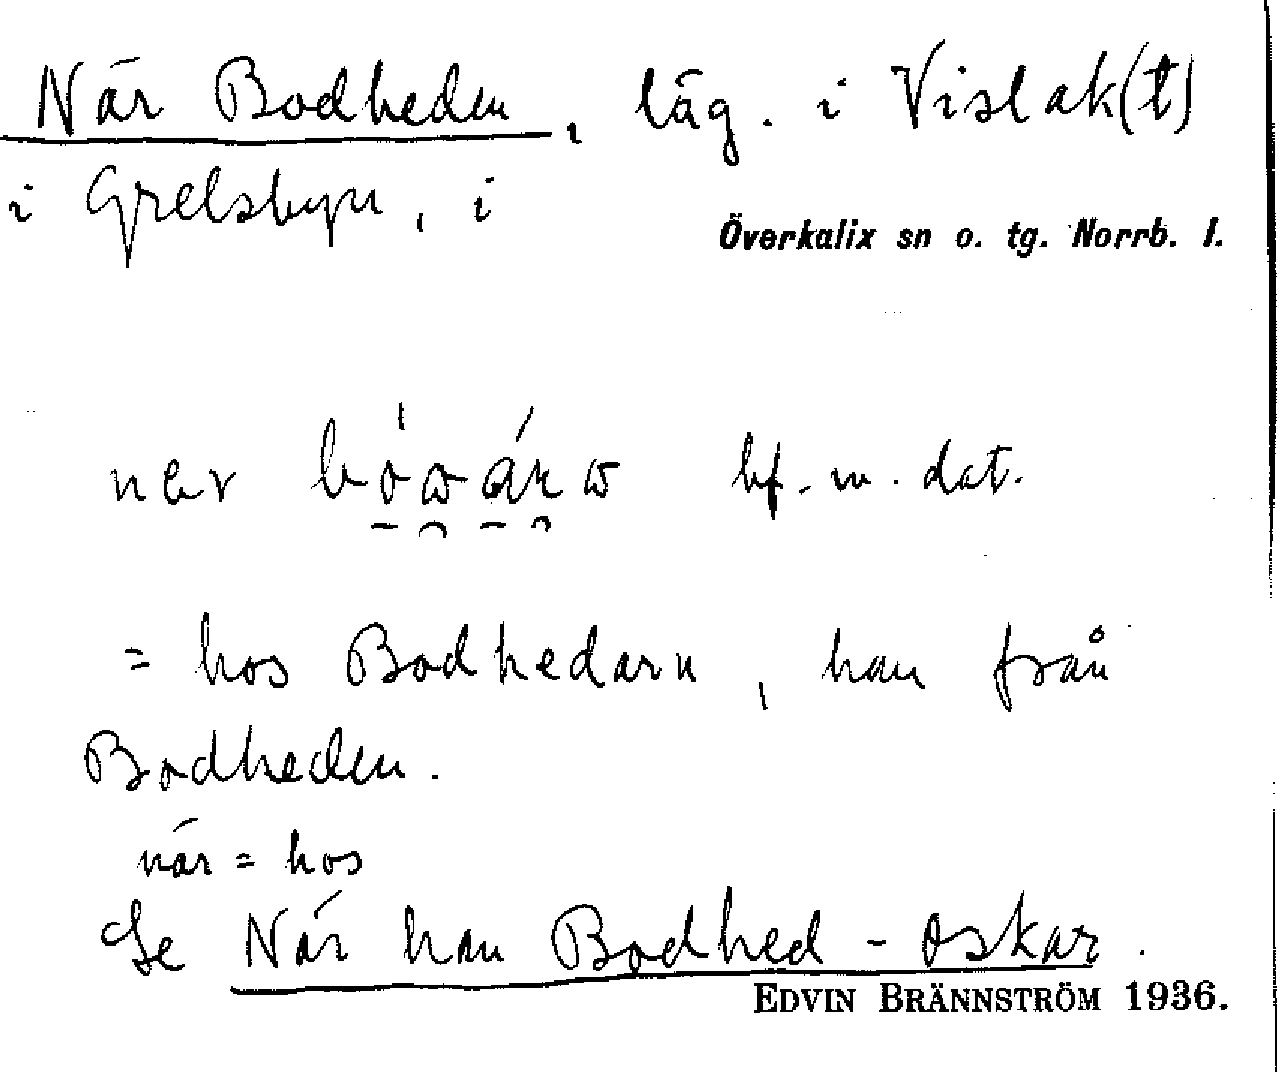 När Bodheden, läg. i Vislak(t)
i Grelsbyn, i
Överkalix sn o. tg. Norrb. l.
bf. m. dat.
= hos Bodhedarn, han från
Bodheden.
när = hos
Se När han Bodhed-Oskar.
EDVIN BRÄNNSTRÖM 1936.